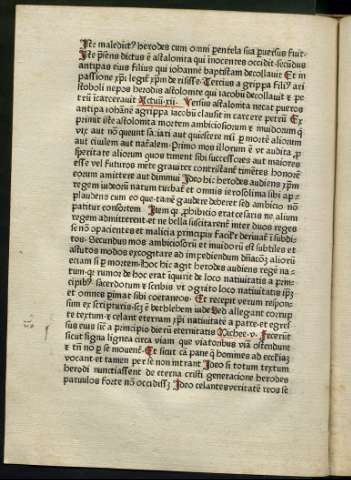 Iste maledictꝰ herodes cum omni pentela sua ꝑuersus fuit.
Iste p̄mus dictus ē astalonita qui inocentes occidit. secūdus
antipas eius filius qui iohannē baptistam decollauit Et in
passione xp̄i legit̄ xp̄m derisisse. Tercius agrippa filiꝰ ari
stoboli nepos herodis astolonite qui iacobū decollauit ⁊ pe
trū ī carcerauit Actuū .xii. Versus astalonita necat pueros
antipa iohānē agrippa iacobū claust̄ in carcere petrū Ex
primit iste astalonita mortem ambiciosorum ⁊ inuidorum q̄
vix aut nō queunt saciari aut quiescere nisi ꝑ mortē aliorum
aut ciuilem aut nat̄alem. Primo mos illorum ē vt audita ꝓ
speritate aliorum quos timent sibi successores aut maiores
esse vel futuros mēte grauiter contristant̄ timētes honorē
eorum amittere aut diminui Ideo hic herodes audiens xp̄m
regem iudeorū natum turbat̄ et omnis ierosolima sibi ap
plaudens cum eo que tanē gaudere deberet sed ambicio nō
patitur consortem Item qꝛ ꝓhibicio erat cesaris ne alium
regem admitterent et ne bella suscitarent̄ inter duos reges
se nō opacientes et malicia principis facile deriuat̄ ī subdi
tos. Secundus mos ambiciosorū et inuidorū est subtiles et
astutos modos excogitare ad impediendum dīacōꝫ aliorū
eciam si ꝑ mortem. hoc hic agit herodes audiens regē na
tum qꝛ rumor de hoc erat iquirit de loco natiuitatis a prin
cipibꝰ sacerdotum et scribis vt cognito loco natiuitatis ip̄ꝫ
et omnes p̄imat sibi coetaneos. Et recepit verum respon
sum ex scripturis scꝫ in bethleem iude Sed allegant corrup
te textum ⁊ celant eternam xp̄i natiuitatē a patre et egres
sus eius siue a principio dierū eternitatis Michee .v. Fecerūt
sicut ligna lignea circa viam que viatoribus viā ostendunt
⁊ tn̄ nō ꝑ se mouent̄. Et sicut cāpane q̄ homines ad ecclīaꝫ
vocant et tamen per se nō intrant Ideo si totum textum
herodi nunctiassent de eterna cristi generacione herodes
paruulos forte nō occidissꝫ Ideo celantes veritatē reos se